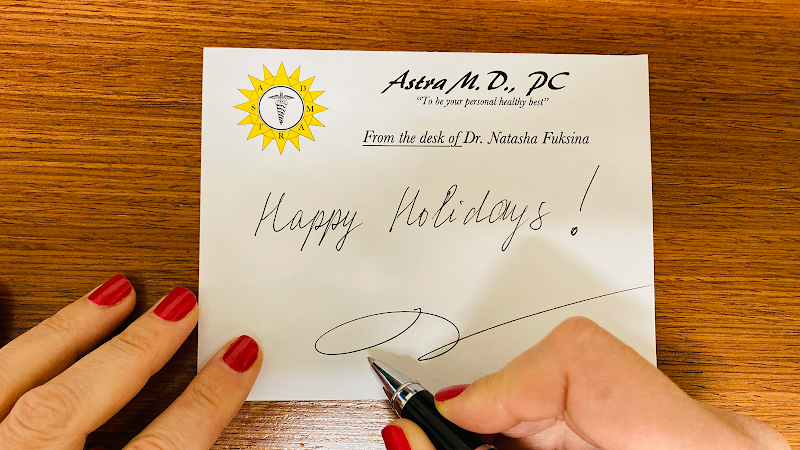 Astra M.D., PC
"To be your personal healthy best"
ASTRA MD
From the desk of Dr. Natasha Fuksina
Happy Holidays!